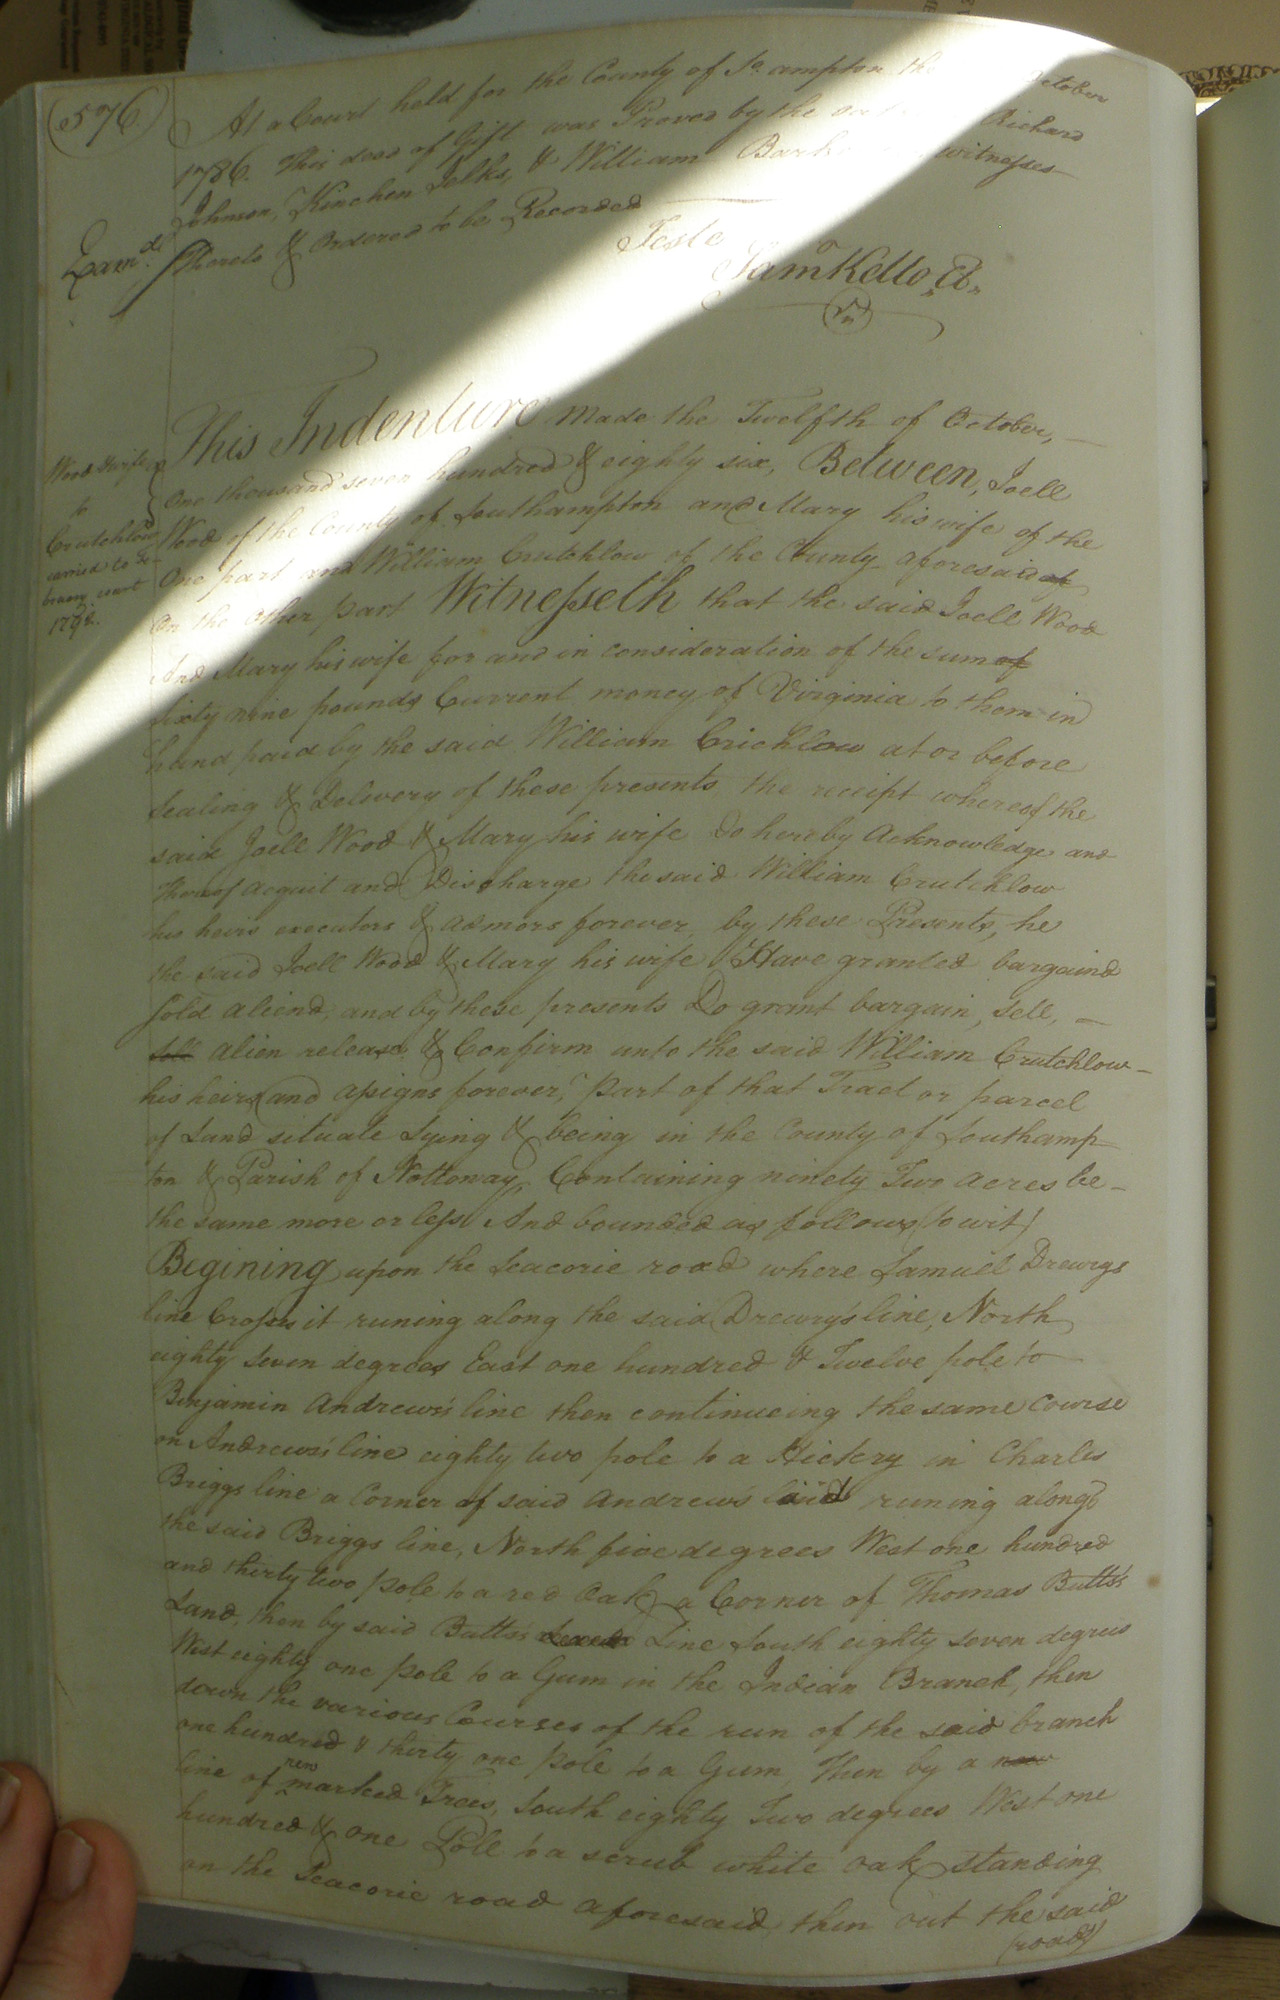 576
At a Court held for the County of So.ampton the October
1786. This deed of Gift was Proved by the Richard
Johnson, Kinchen Jelks, & William witnesses
Thereto & Ordered to be Recorded
Examd.
Teste
Samo Kello, Cl.
This Indenture Made the Twelfth of October, —
One thousand seven hundred & eighty six, Between, Joell
Wood of the County of Southampton and Mary his wife of the
One part and William Crutchlow of the County aforesaid of
On the other part Witnesseth that the said Joell Wood
And Mary his wife for and in consideration of the sum of
sixty nine pounds Current money of Virginia to them in
hand paid by the said William Crichlow at or before
Sealing & Delivery of these presents the receipt whereof the
said Joell Wood & Mary his wife do hereby Acknowledge and
thereof acquit and Discharge the said William Crutchlow
his heirs executors & admors forever by these Presents, he
the said Joell Wood & Mary his wife Have granted bargaind
Sold aliend, and by these presents Do grant bargain, Sell, —
sell alien release & Confirm unto the said William Crutchlow —
his heirs and assigns forever, part of that Tract or parcel
of Land situate Lying & being in the County of Southamp
ton & Parish of Nottoway, Containing ninety Two acres be —
the same more or less And bounded as follows (to wit)
Begining upon the Seacorie road where Samuel Drewrys
line Crosses it runing along the said Drewrys line, North
eighty seven degrees East one hundred & Twelve pole to
Benjamin Andrews's line then continueing the same Course
on Andrews's line eighty two pole to a Hickry in Charles
Briggs line a Corner of said Andrew's runing along
the said Briggs line, North five degrees West one hundred
and thirty two pole to a red Oak, a Corner of Thomas Butts's
Land, then by said Butts's Line South eighty seven degrees
West eighty one pole to a Gum in the Indian Branch, then
down the various Courses of the run of the said branch
one hundred & thirty one pole to a Gum, Then by a new
line of new marked Trees, South eighty Two degrees West one
hundred & one Pole to a scrub white oak standing
on the Seacorie road aforesaid, then out the said
(road)
Wood & wife
to
Crutchlow
carried to Fe-
bruary court